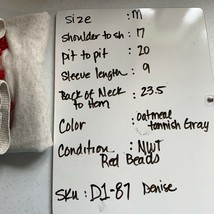 Size : M
Shoulder to sh : 17
pit to pit : 20
Sleeve length : 9
Back of Neck : 23.5
to Hem
Color : Oatmeal
tannish Gray
Condition : NWT
Red Beads
SKU : D1-87 Denise